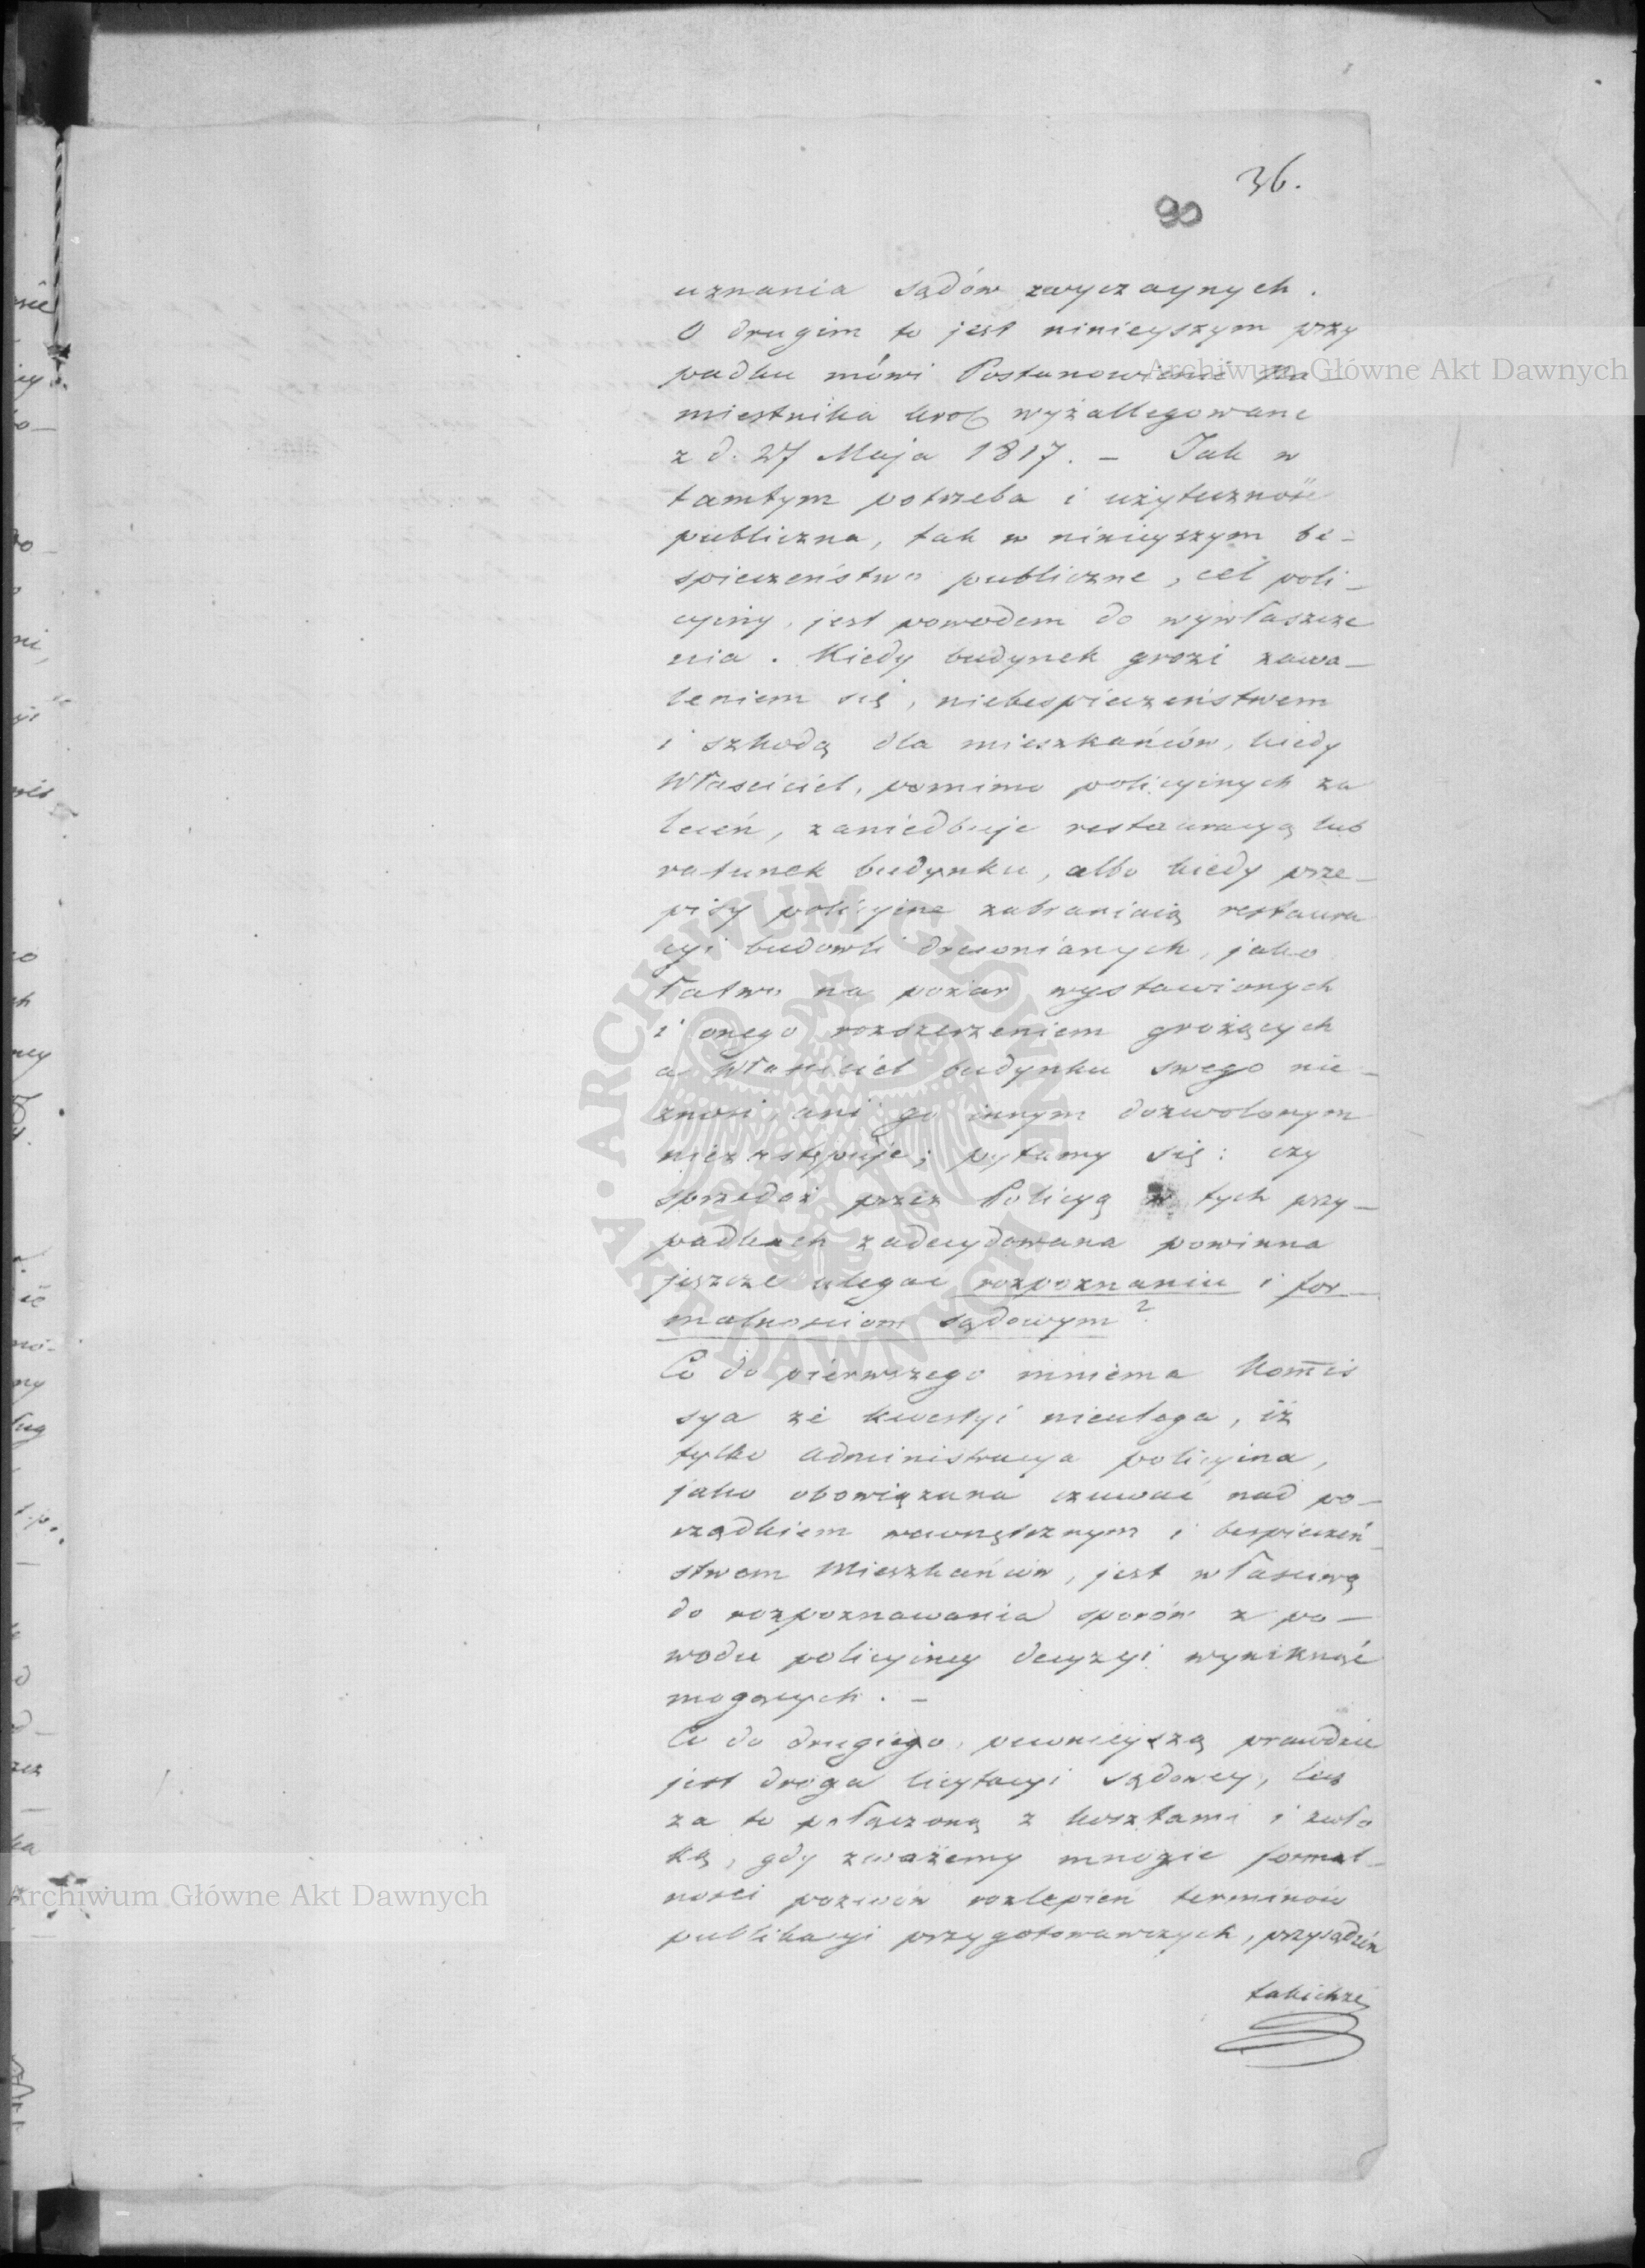 36.
90
uznania sądów zwyczaynych.
O drugim to jest ninieyszym przy
padku mówi Postanowienie Na
miestnika Krol wyżallegowane
z d. 27 Maja 1817. – Jak w
tamtym potrzeba i użyteczność
publiczna, tak w ninieyszym be-
spieczeństwo publiczne, cel poli-
cyiny, jest powodem do wywłaszcze
nia. Kiedy budynek grozi zawa-
leniem się, niebespieczeństwem
i szkodą dla mieszkańców, kiedy
Właściciel, pomimo policyinych za
leceń, zaniedbuje restauracyą lub
ratunek budynku, albo kiedy prze-
pisy policyine zabraniaią restaura
cyi budowli drewnianych, jako
łatwo na pożar wystawionych
i onego rozszerzeniem grożących
a Właściciel budynku swego nie-
znosi, ani go innym dozwolonym
niezastępuje; pytamy się: czy
sprzedaż przez Policyą w tych przy-
padkach zadecydowana powinna
jeszcze ulegać rozpoznaniu i for-
malnościom sądowym?
Co do pierwszego mniema Kommis
sya że kwestyi nieulega, iż
tylko administracya policyina,
jako obowiązana czuwać nad po-
rządkiem wewnętrznym i bespieczeń-
stwem Mieszkańców, jest właściwą
do rozpoznawania sporów z po-
wodu policyiney decyzyi wyniknąć
mogących. –
Co do drugiego, pewnieyszą prawdzie
jest droga licytacyi sądowey, lecz
za to połączoną z kosztami i zwło
ką, gdy zważemy mnogie formal-
ności pozwów rozlepień terminów
publikacyi przygotowawczych, przysądzeń
takichże
Archiwum Główne Akt Dawnych
Archiwum Główne Akt Dawnych
ARCHIWUM GŁÓWNE AKT DAWNYCH